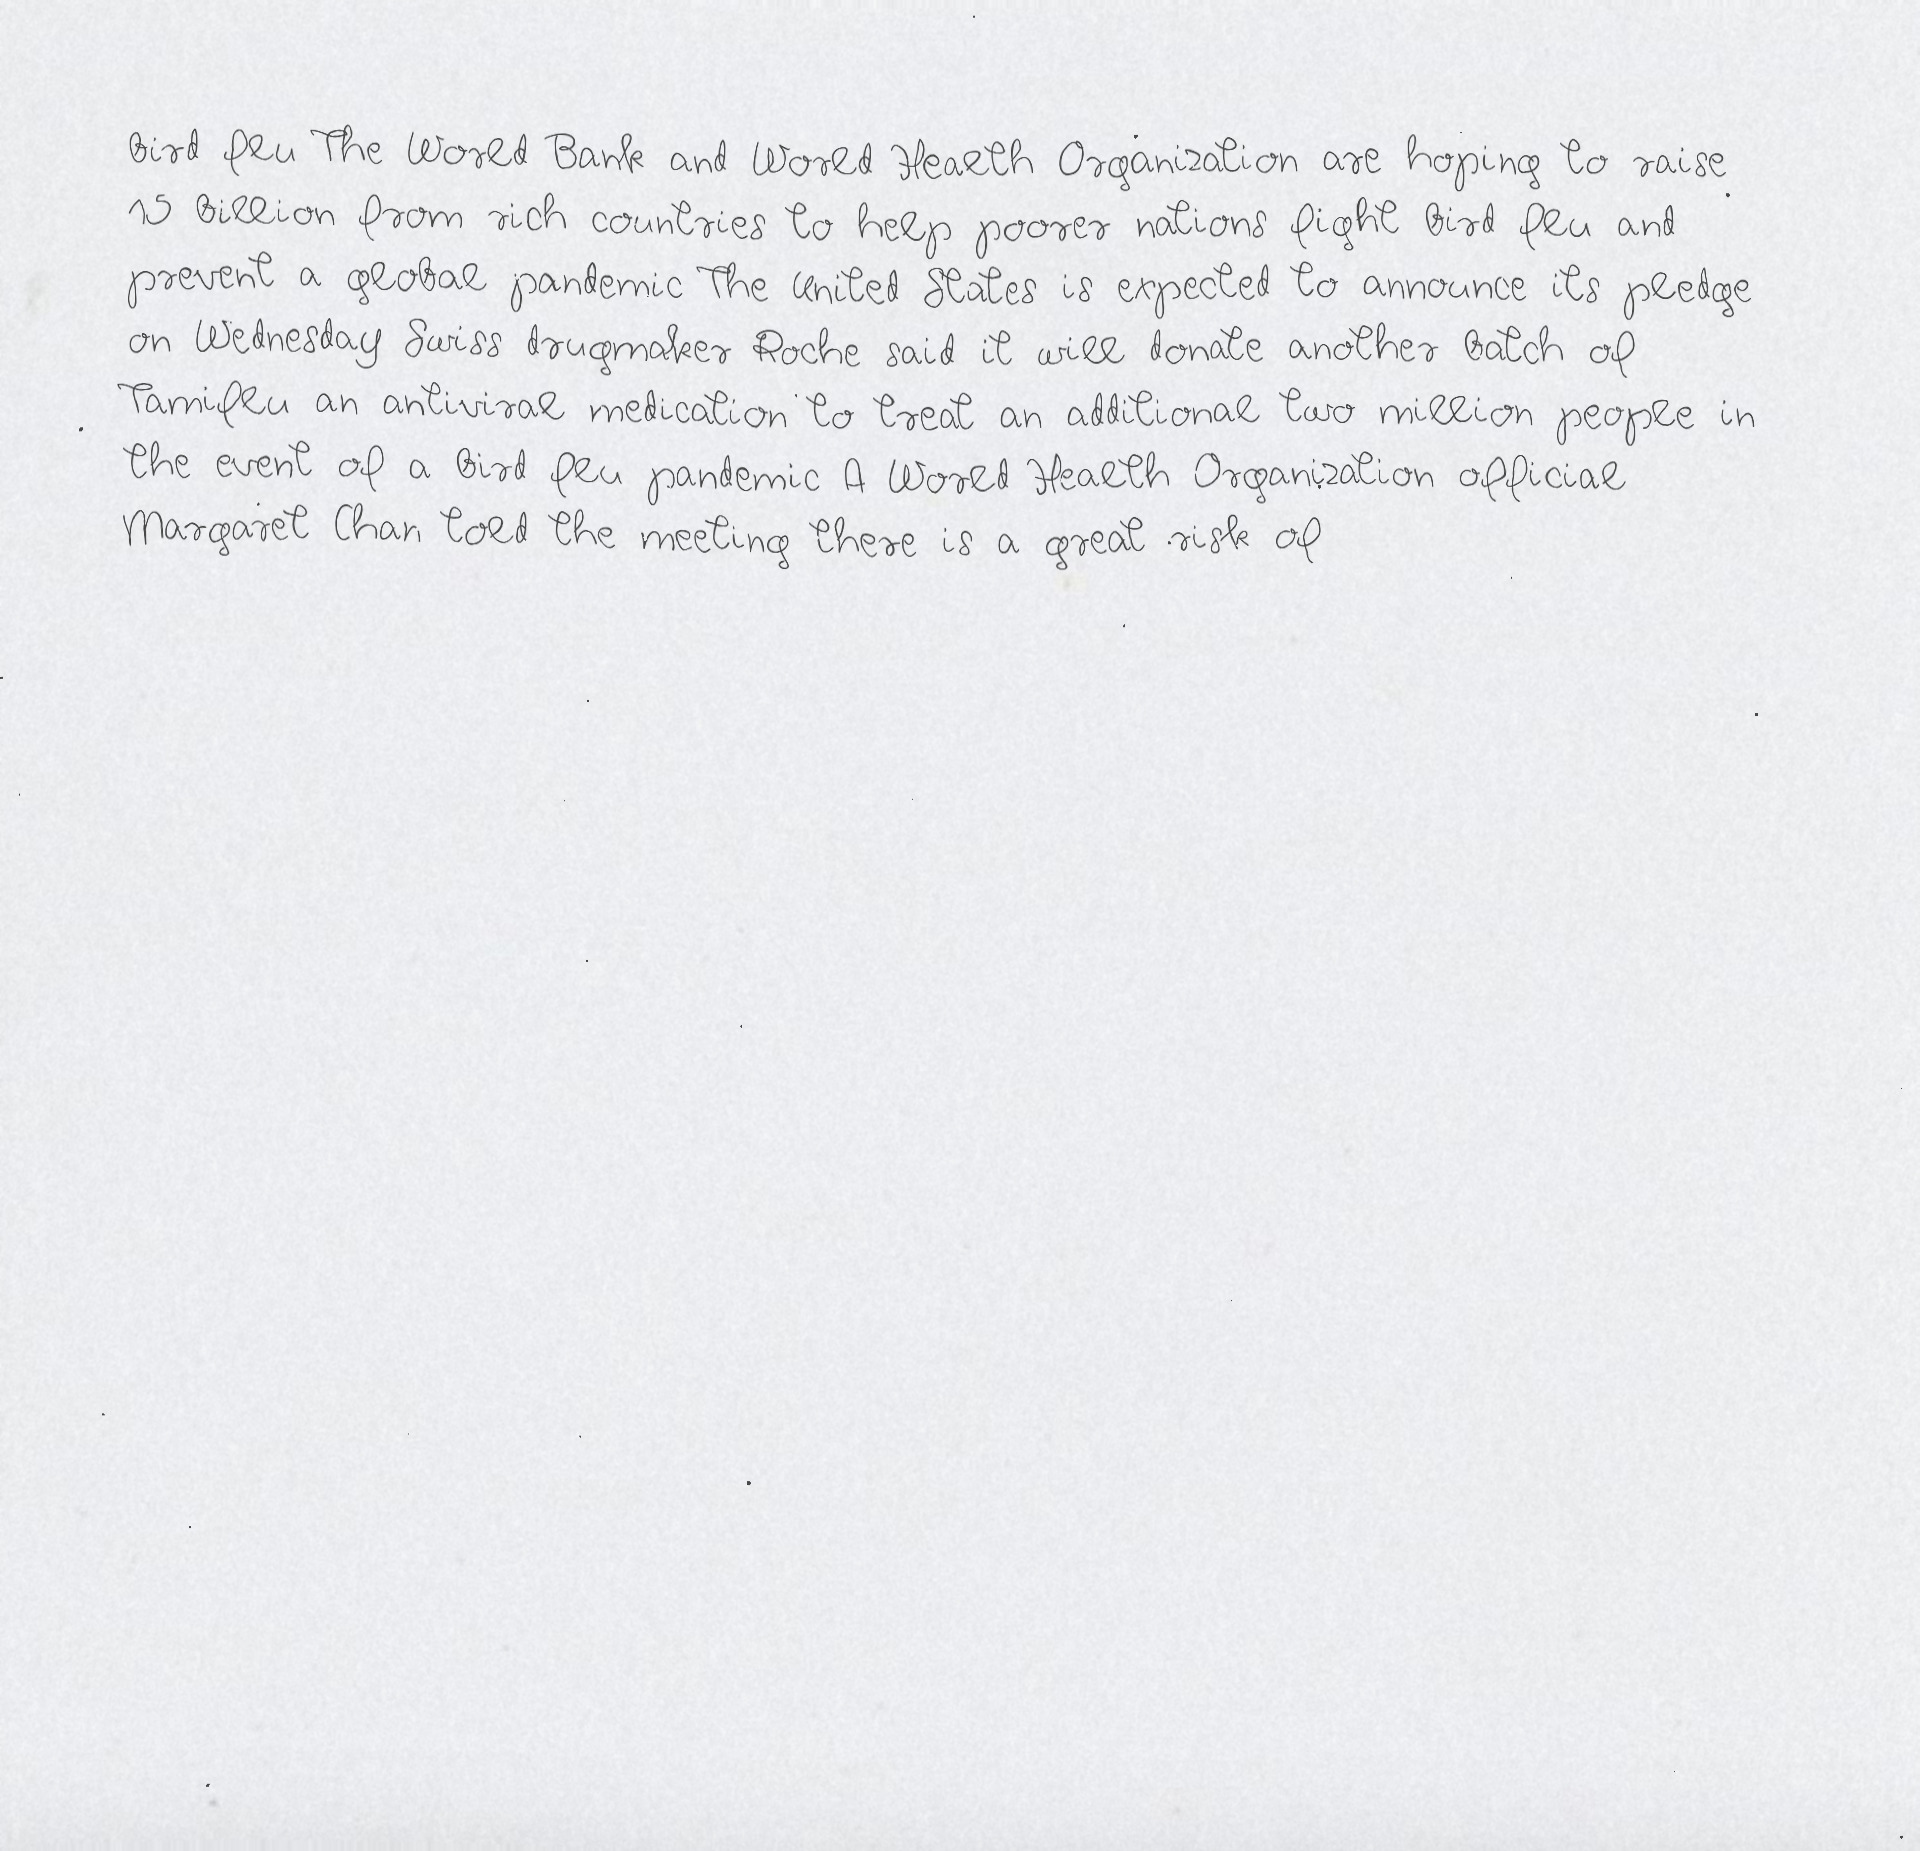 bird flu The World Bank and World Health Organization are hoping to raise
15 billion from rich countries to help poorer nations fight bird flu and
prevent a global pandemic The United States is expected to announce its pledge
on Wednesday Swiss drugmaker Roche said it will donate another batch of
Tamiflu an antiviral medication to treat an additional two million people in
the event of a bird flu pandemic A World Health Organization official
Margaret Chan told the meeting there is a great risk of